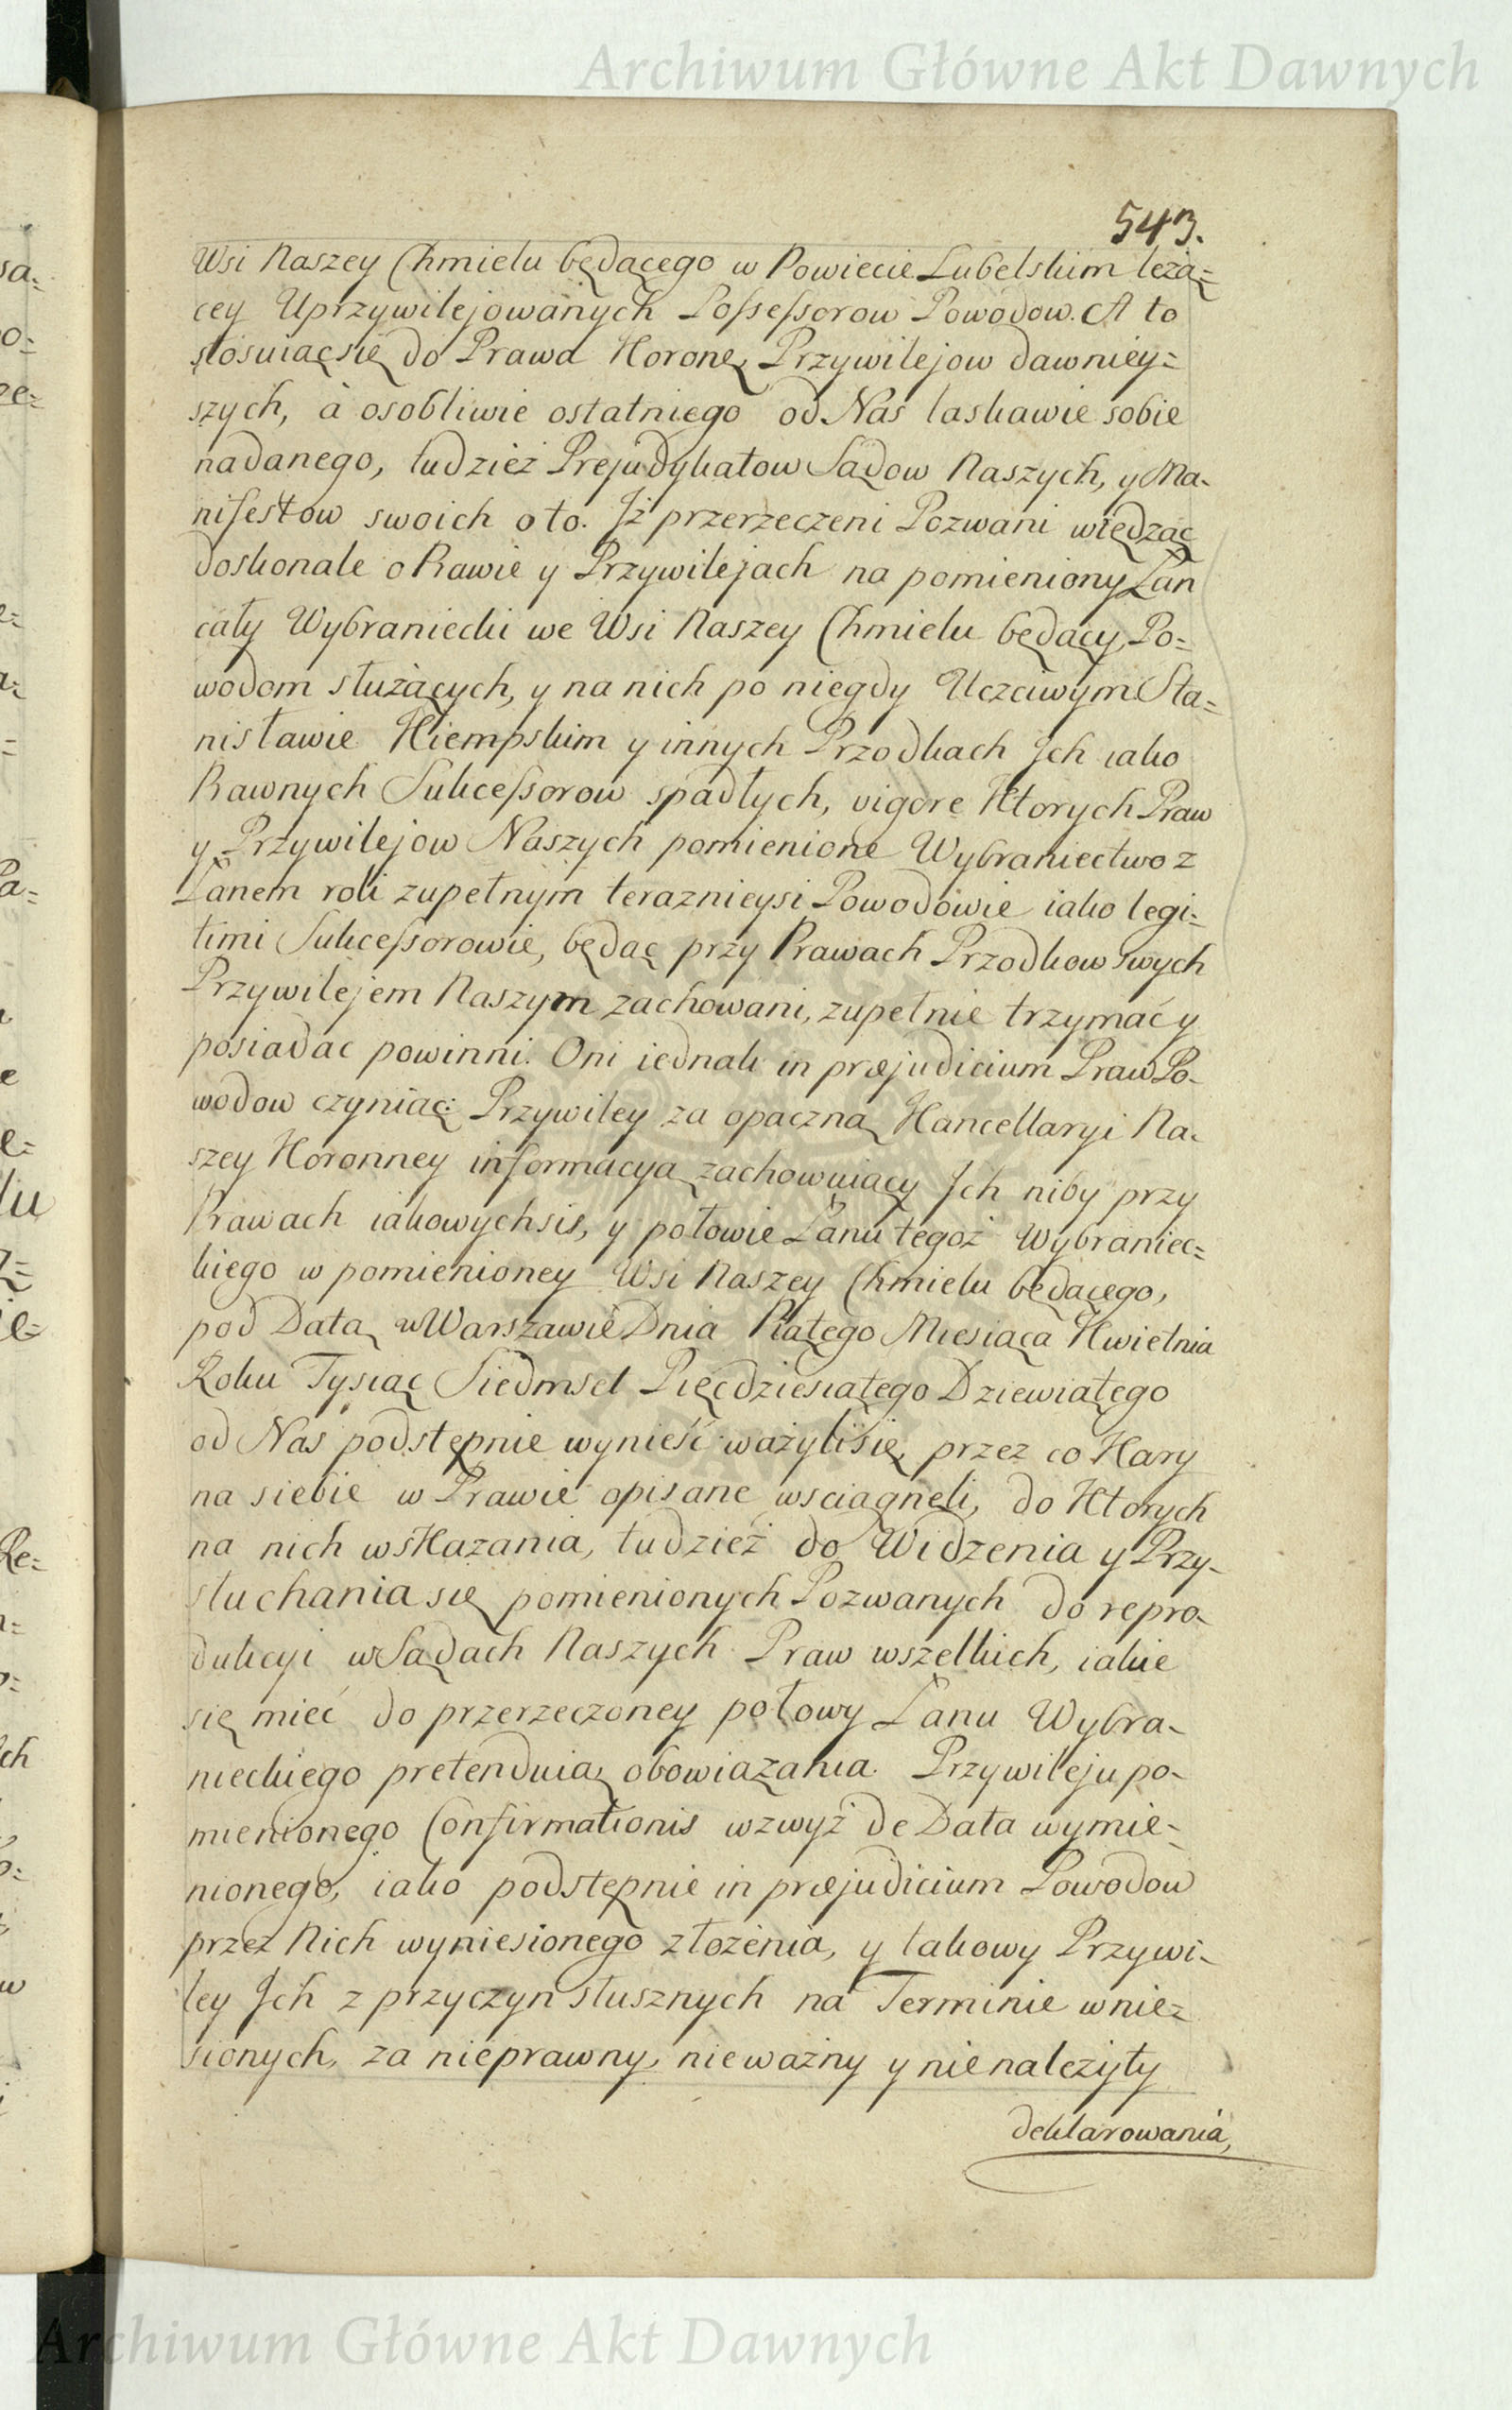 Archiwum Główne Akt Dawnych
543.
Wsi Naszey Chmielu będącego w Powiecie Lubelskim leżą=
cey Uprzywilejowanych Possessorow Powodow. A to
stosuiąc się do Prawa Koronę, Przywilejow dawniey=
szych, à osobliwie ostatniego od Nas laskawie sobie
nadanego, tudzież Prejudykatow Sądow Naszych, y Ma-
nifestow swoich o to. Iż przerzeczeni Pozwani wiedząc
doskonale o Prawie y Przywilejach na pomieniony Łan
cały Wybraniecki we Wsi Naszey Chmielu będący, Po=
wodom służących, y na nich po niegdy Uczciwym Sta=
nisławie Kiempskim y innych Przodkach Ich iako
Prawnych Sukcessorow spadłych, vigore Ktorych Praw
y Przywilejow Naszych pomienione Wybraniectwo z
Łanem roli zupełnym teraznieysi Powodowie iako legi=
timi Sukcessorowie, będąc przy Prawach Przodkow swych
Przywilejem Naszym zachowani, zupełnie trzymać y
posiadac powinni. Oni iednak in præjudicium Praw Po-
wodow czyniąc: Przywiley za opaczną Kancellaryi Na-
szey Koronney informacyą zachowuiący Ich niby przy
Prawach iakowychsis, y połowie Łanu tegoż Wybraniec=
kiego w pomienioney Wsi Naszey Chmielu będącego,
pod Datą w Warszawie Dnia Piątego Miesiąca Kwietnia
Roku Tysiąc Siedmset Pięćdziesiątego Dziewiątego
od Nas podstępnie wynieść ważyli się, przez co Kary
na siebie w Prawie opisane wsciągneli, do Ktorych
na nich wsKazania, tudzież do Widzenia y Przy-
słuchania się pomienionych Pozwanych do repro-
dukcyi w Sądach Naszych Praw wszelkich, iakie
się mieć do przerzeczoney połowy Łanu Wybra-
nieckiego pretenduią, obowiązania. Przywileju po-
mienionego Confirmationis wzwyż de Data wymie-
nionego, iako podstępnie in præjudicium Powodow
przez Nich wyniesionego złożenia, y takowy Przywi-
ley Ich z przyczyn słusznych na Terminie wnie-
sionych, za nieprawny, nieważny y nienależyty
deklarowania,
Archiwum Główne Akt Dawnych